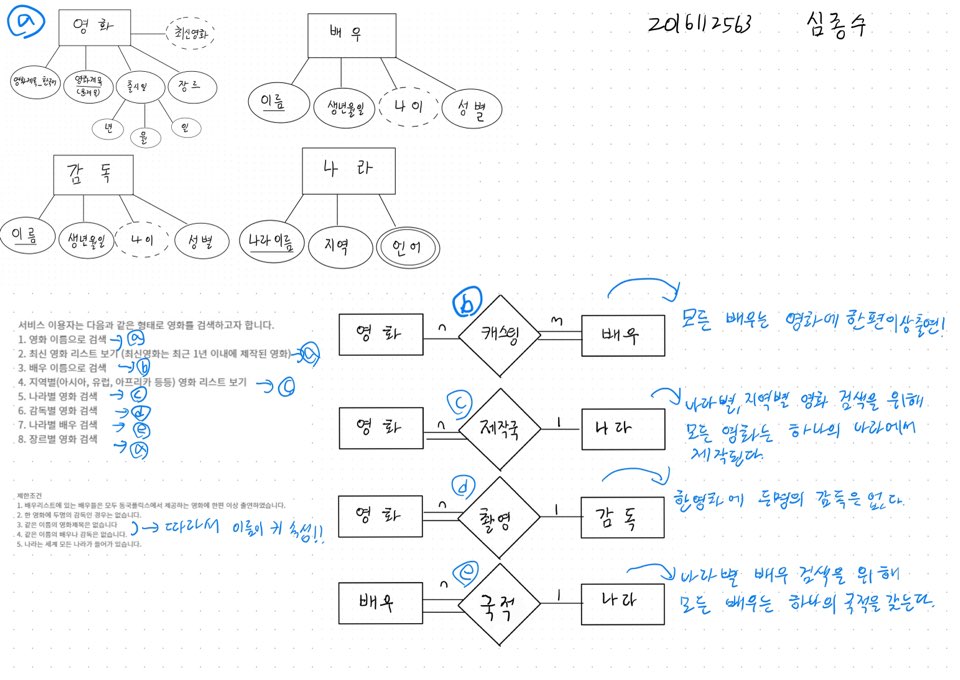 ⓐ
2016112563 심종수
영화
최신영화
영화제목_한국어
영화제목
출시일
장르
년
월
일
배우
이름
생년월일
나이
성별
감독
이름
생년월일
나이
성별
나라
나라이름
지역
언어
서비스 이용자는 다음과 같은 형태로 영화를 검색하고자 합니다.
1. 영화 이름으로 검색 → ⓐ
2. 최신 영화 리스트 보기 (최신영화는 최근 1년 이내에 제작된 영화) → ⓐ
3. 배우 이름으로 검색 → ⓑ
4. 지역별(아시아, 유럽, 아프리카 등등) 영화 리스트 보기 → ⓒ
5. 나라별 영화 검색 → ⓒ
6. 감독별 영화 검색 → ⓓ
7. 나라별 배우 검색 → ⓔ
8. 장르별 영화 검색 → ⓐ
제한조건
1. 배우리스트에 있는 배우들은 모두 동국플릭스에서 제공하는 영화에 한편 이상 출연하였습니다.
2. 한 영화에 두명의 감독인 경우는 없습니다.
3. 같은 이름의 영화제목은 없습니다
4. 같은 이름의 배우나 감독은 없습니다.
5. 나라는 세계 모든 나라가 들어가 있습니다.
→ 따라서 이름이 키 속성!!
ⓑ
영화 n 캐스팅 m 배우
모든 배우는 영화에 한편이상출연!
ⓒ
영화 n 제작국 1 나라
나라별, 지역별 영화 검색을 위해
모든 영화는 하나의 나라에서
제작된다.
ⓓ
영화 n 촬영 1 감독
한영화에 두명의 감독은 없다.
ⓔ
배우 n 국적 1 나라
나라별 배우 검색을 위해
모든 배우는 하나의 국적을 갖는다.